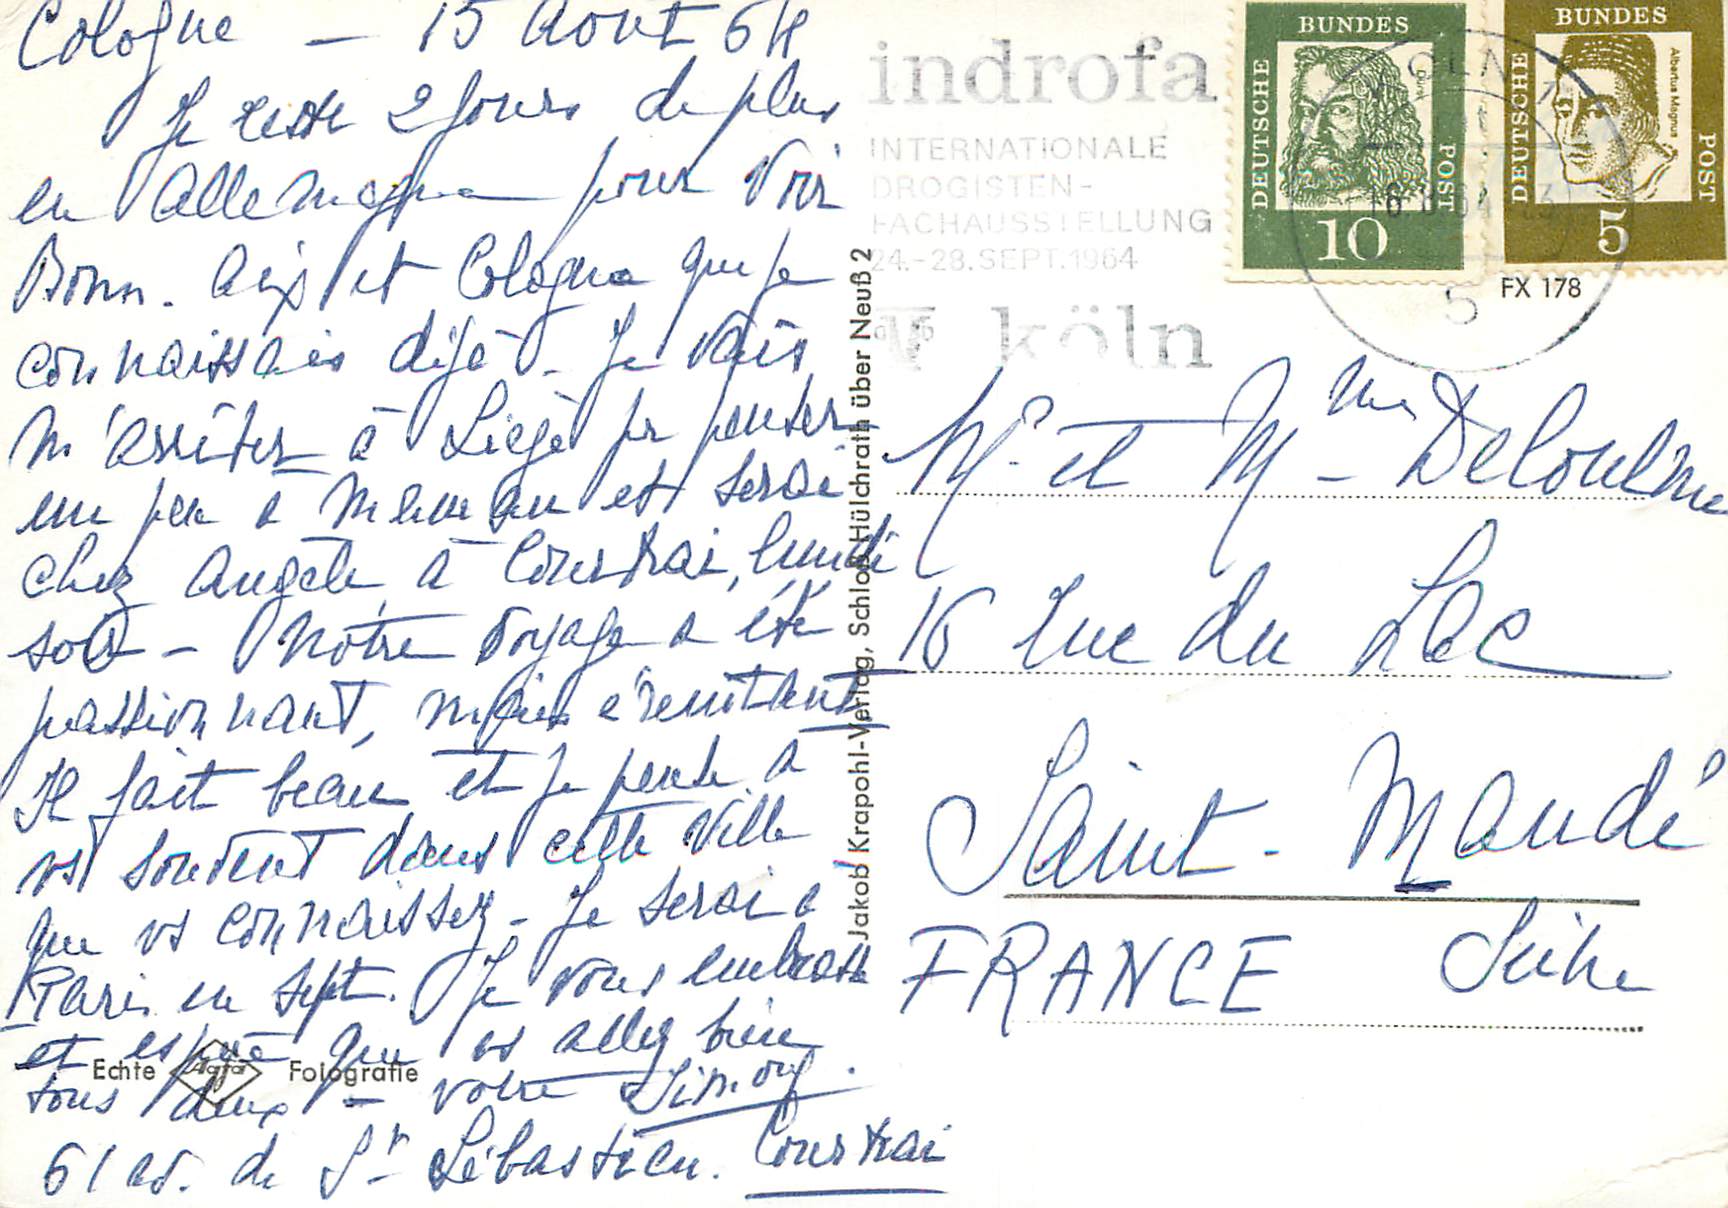 Cologne — 15 Août 64
Je reste 2 jours de plus
en Allemagne pour voir
Bonn. Aix et Cologne que je
connaissais déjà. Je vais
m'arrêter à Liège pr penser
un peu à Maman et serai
chez Angèle à Courtrai, lundi
soir — Notre voyage a été
passionnant, mais éreintant
Il fait beau et je pense à
vs souvent dans cette ville
que vs connaissez - Je serai à
Paris en Sept. Je vous embrasse
et espère que vs allez bien
tous deux — votre Simone.
61 av. de St Sébastien. Courtrai
Echte Agfa Fotografie
Jakob Krapohl-Verlag, Schloß Hülchrath über Neuß 2
indrofa
INTERNATIONALE
DROGISTEN-
FACHAUSSTELLUNG
24.-28.SEPT.1964
köln
DEUTSCHE BUNDES POST
Dürer
10
DEUTSCHE BUNDES POST
Albertus Magnus
5
KÖLN 1
5
FX 178
Mr et Mme Deloulme
16 rue du Lac
Saint-Mandé
Seine
FRANCE